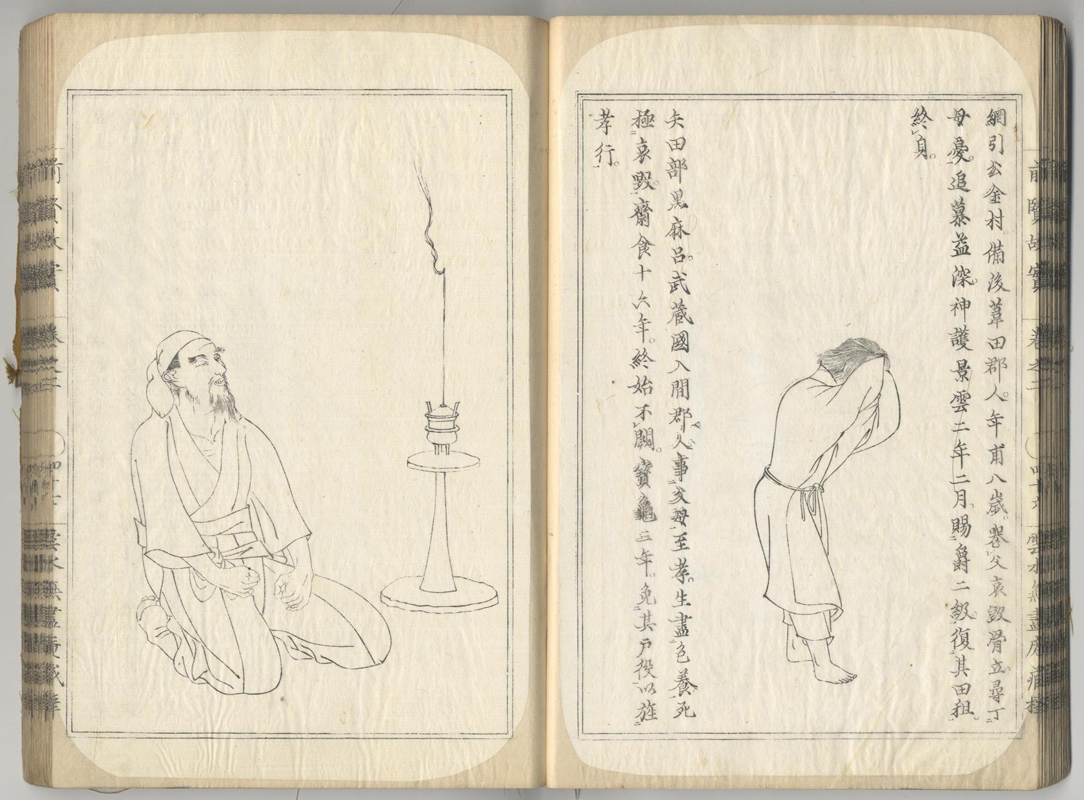 網引公金村備後葦田郡人年甫八歳喪父哀毀骨立尋丁
母憂追慕益深神護景雲二年二月賜爵二級復其田租
終身
矢田部黒麻呂武蔵國入間郡人事父母至孝生盡色養死
極哀毀齋食十六年終始不闕寳龜三年免其戸役以旌
孝行
前賢故實